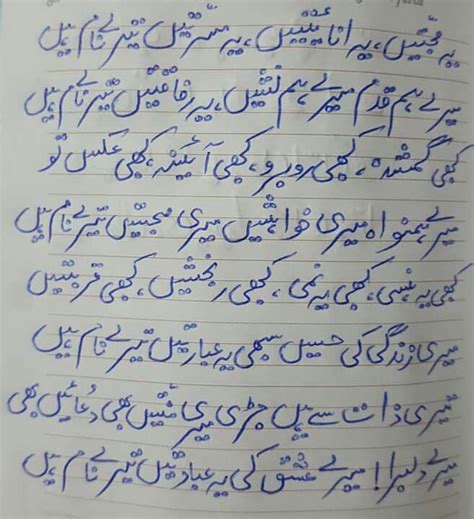 یہ محبتیں، یہ انائیتیں، یہ مسرتیں تیرے نام ہیں
میرے ہم قدم میرے ہم نشیں، یہ رفاقتیں تیرے نام ہیں
کبھی گمشدہ، کبھی روبرو، کبھی آئینہ، کبھی عکس تو
میرے ہمنواہ میری خواہشیں میری محبتیں تیرے نام ہیں
کبھی یہ ہنسی، کبھی یہ نمی، کبھی رنجشیں، کبھی قربتیں
میری زندگی کی حسیں سبھی یہ عبارتیں تیرے نام ہیں
تیری ذات سے ہیں جڑی میری منتیں بھی دعائیں بھی
میرے دلبرا! میرے عشق کی یہ عبادتیں تیرے نام ہیں